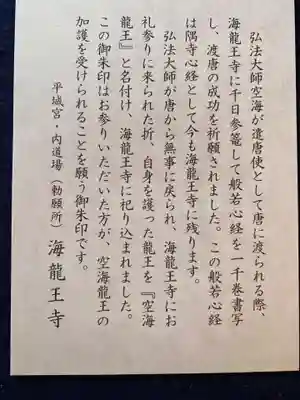 弘法大師空海が遣唐使として唐に渡られる際、
海龍王寺に千日参篭して般若心経を一千巻書写
し、渡唐の成功を祈願されました。この般若心経
は隅寺心経として今も海龍王寺に残ります。
弘法大師が唐から無事に戻られ、海龍王寺にお
礼参りに来られた折、自身を護った龍王を『空海
龍王』と名付け、海龍王寺に祀り込まれました。
この御朱印はお参りいただいた方が、空海龍王の
加護を受けられることを願う御朱印です。
平城宮・内道場（勅願所）海龍王寺